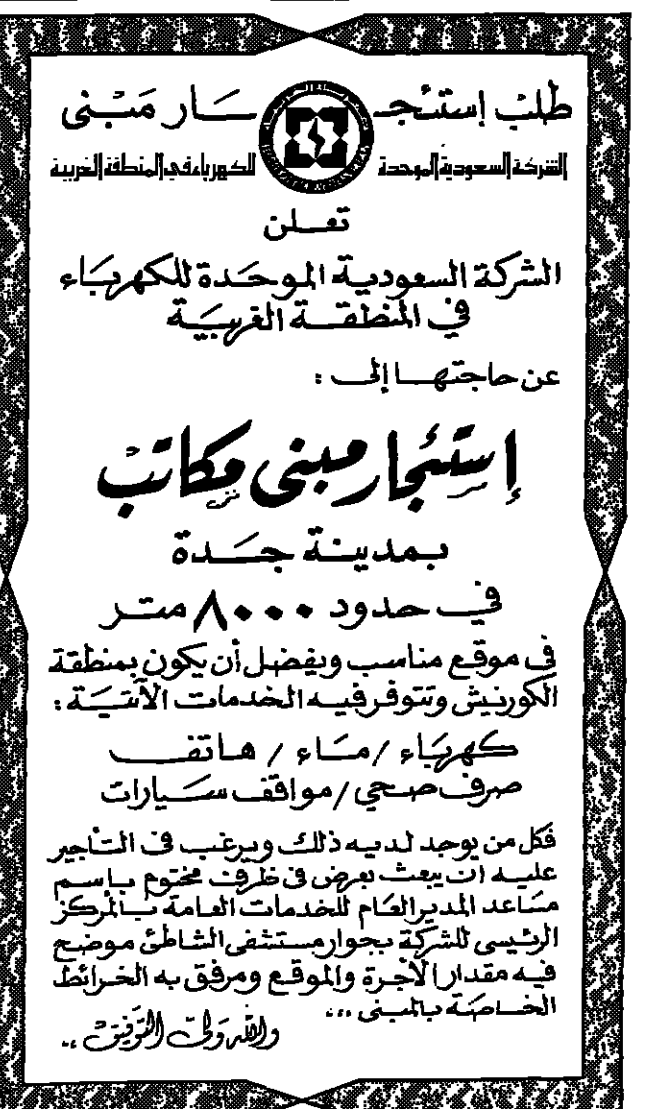 طلب إستئجـــار مبنى
الشركة السعودية الموحدة للكهرباء في المنطقة الغربية
تعلن
الشركة السعودية الموحدة للكهرباء
في المنطقة الغربية
عن حاجتها إلى :
إستئجار مبنى مكاتب
بمدينة جدة
في حدود ٨٠٠٠ متر
في موقع مناسب ويفضل أن يكون بمنطقة
الكورنيش وتتوفر فيه الخدمات الآتية :
كهرباء / ماء / هاتف
صرف صحي / مواقف سيارات
فكل من يوجد لديه ذلك ويرغب في التأجير
عليه ان يبعث بعرض في ظرف مختوم باسم
مساعد المدير العام للخدمات العامة بالمركز
الرئيسي للشركة بجوار مستشفى الشاطئ موضح
فيه مقدار الأجرة والموقع ومرفق به الخرائط
الخاصة بالمبنى ...
والله ولي التوفيق ..